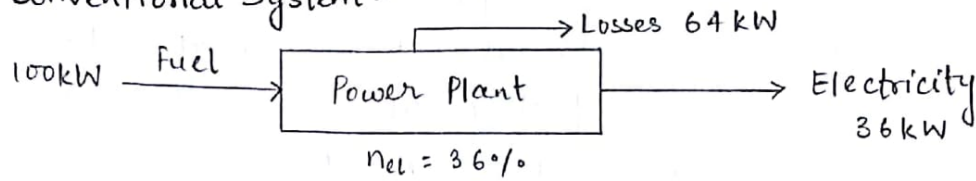 Conventional System
Losses 64 kW
100kW Fuel
Power Plant
Electricity
36kW
ηel = 36%